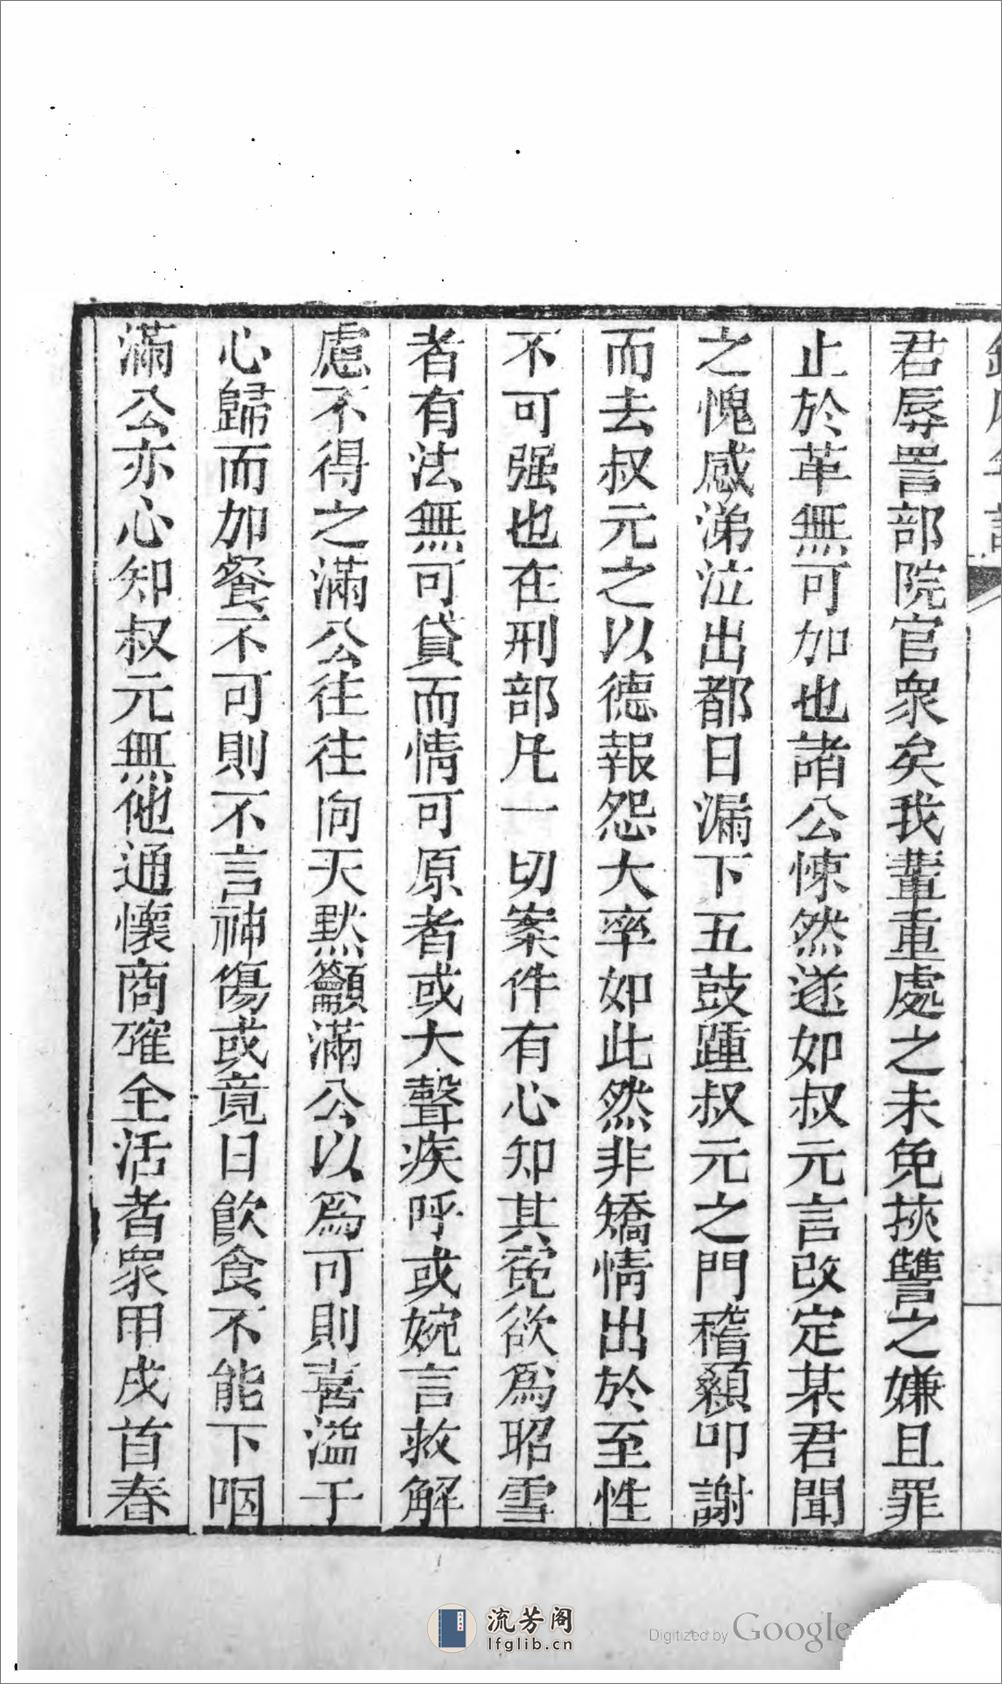 君辱詈部院官衆矣我輩重處之未免挾讐之嫌且罪
止於革無可加也諸公悚然遂如叔元言改定某君聞
之愧感涕泣出都日漏下五鼓踵叔元之門稽顙叩謝
而去叔元之以德報怨大率如此然非矯情出於至性
不可强也在刑部凡一切案件有心知其寃欲爲昭雪
者有法無可貸而情可原者或大聲疾呼或婉言救解
慮不得之滿公往往向天默籲滿公以爲可則喜溢于
心歸而加餐不可則不言神傷或竟日飮食不能下咽
滿公亦心知叔元無他通懷商確全活者衆甲戌首春
流芳阁
lfglib.cn
Digitized by Google